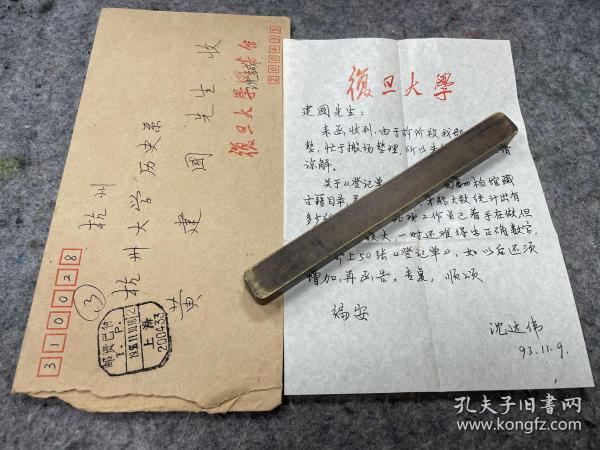 310028
杭州
杭州大学 历史系
③
黄建国先生 收
复旦大学
200433
邮资已付
T. P.
上海
200433
復旦大學
建國先生:
来函收到,由于前阶段我部
整,忙于搬场整理,所以未 请
谅解。
关于《登记单 检馆藏
古籍目录, 才能大致统计出有
多少 工作虽已着手在做,但
较大,一时还难得出正确数字,
上50张《登记单》,如以后还须
增加,再函告。专复,顺颂
编安
沈达伟
93.11.9.
孔夫子旧书网
www.kongfz.com